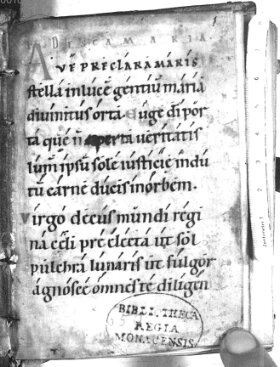 DE SCA MARIA
AVE PRECLARA MARIS
stella inluce gentiu maria
divinitus orta. Euge di por
ta que n aperta veritatis
lum ipsu sole iusticie indu
tu carne ducis in orbem.
Virgo decus mundi regi
na celi pre electa ut sol
pulchra lunaris ut fulgor
agnosce omnes te diligen
BIBLIOTHECA
REGIA
MONACENSIS.